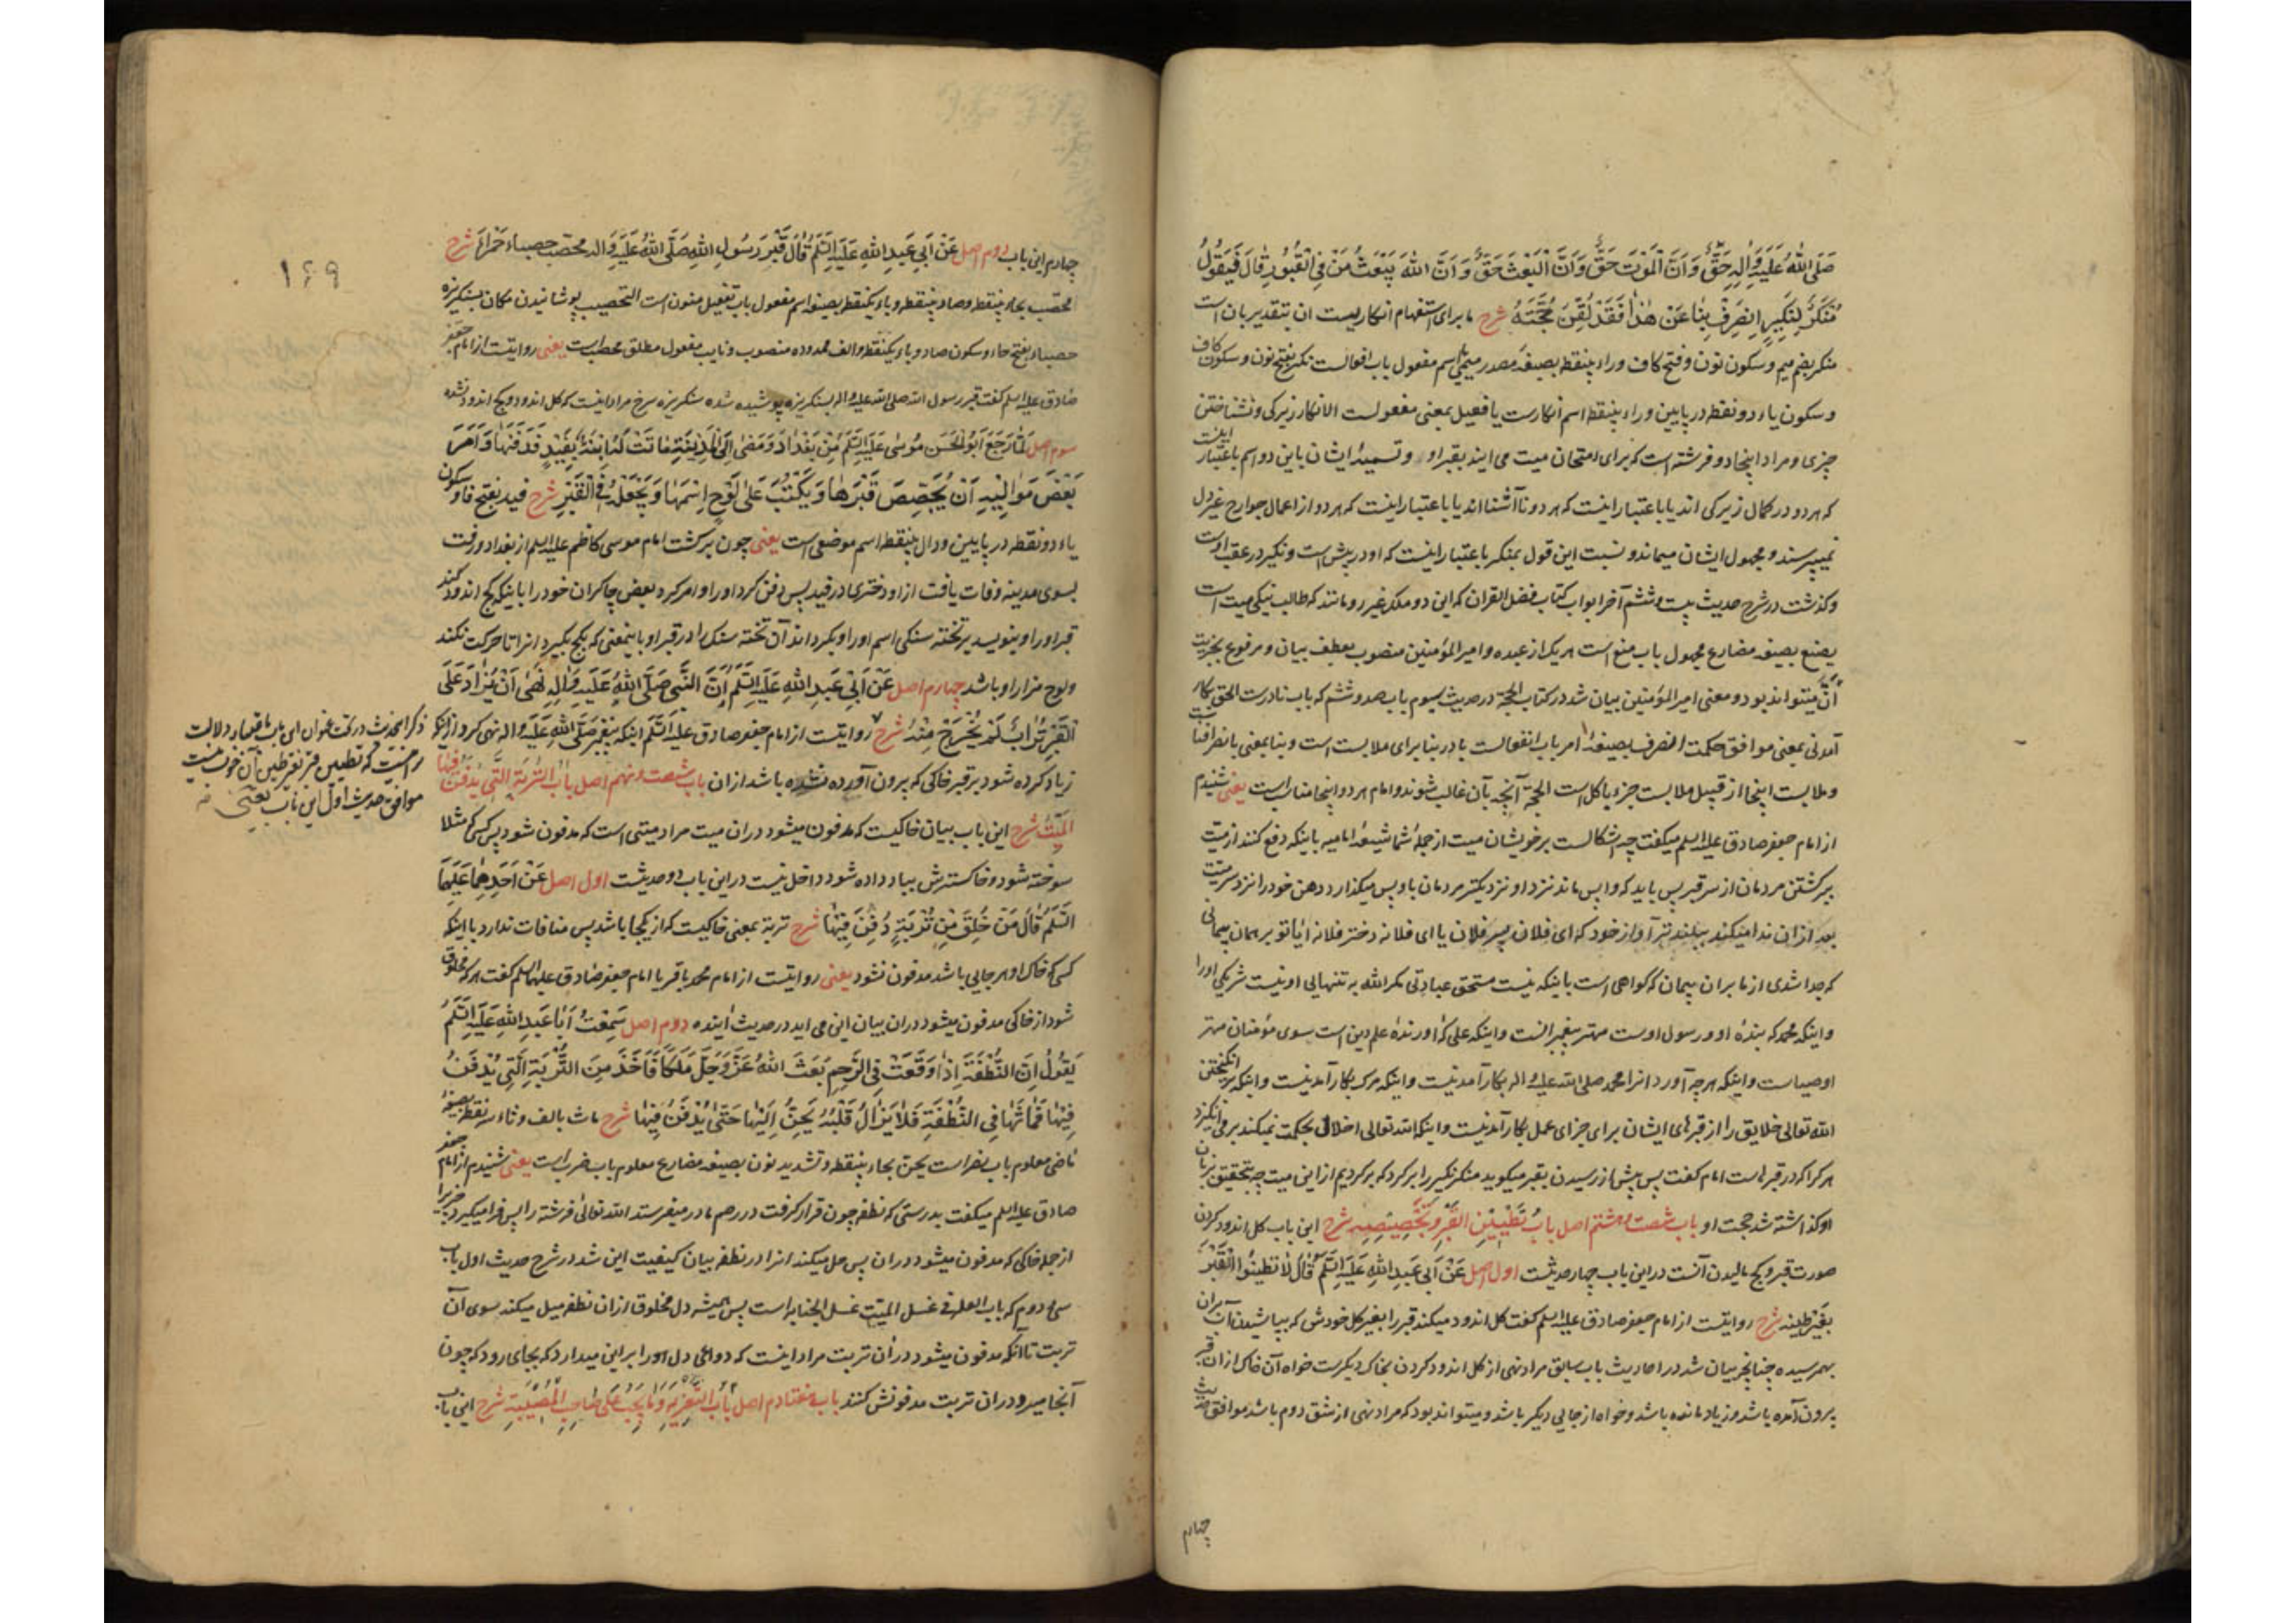 صَلَّى اللهُ عَلَيْهِ وَاٰلِهِ حَقٌّ وَاَنَّ الْمَوْتَ حَقٌّ وَاَنَّ الْبَعْثَ حَقٌّ وَاَنَّ اللهَ يَبْعَثُ مَنْ فِي الْقُبُورِ قَالَ فَيَقُولُ
مُنْكَرٌ لِنَكِيرٍ اِنْصَرِفْ بِنَا عَنْ هٰذَا فَقَدْ لُقِّنَ حُجَّتَهُ شرح ما برای استفهام انکاریست ان بتقدیر بان است
منکر بضم میم و سکون نون و فتح کاف و راء بینقطه بصیغه مصدر میمی اسم مفعول باب افعالست نکیر بفتح نون و سکون کاف
و سکون یاء دو نقطه در پایین و راء بینقطه اسم انکارست یا فعیل بمعنی مفعولست الانکار زیرکی و نشناختن
چیزی و مراد اینجا دو فرشته است که برای امتحان میت می ایند بقبر او و تسمیهٔ ایشان باین دو اسم باعتبار اینست
که هر دو در کمال زیرکی اند یا باعتبار اینست که هر دو نا آشنا اند یا باعتبار اینست که هر دو از اعمال جوارح غیر دل
نمیپرسند و مجهول ایشان میماند و نسبت این قول بمنکر باعتبار اینست که او در پیش است و نکیر در عقب اوست
و گذشت در شرح حدیث بیست و ششم آخر ابواب کتاب فضل القران که این دو ملک غیر رومانند که طالب نیکی میت است
یصنع بصیغه مضارع مجهول باب منع است هر یک از عبده و امیر المؤمنین منصوب بعطف بیان و مرفوع بخبریت
اَنَّ میتواند بود و معنی امیر المؤمنین بیان شد در کتاب الحجة در حدیث سیوم باب صد و ششم که باب نادرست الحق بکار
آمدنی بمعنی موافق حکمت انصرف بصیغهٔ امر باب انفعالست با در بنا برای ملابست است و بنا بمعنی بانصرافنا
و ملابست اینجا از قبیل ملابست جزء با کل است الحجة آنچه بآن غالب شوند و امام هر دو اینجا مناسب است یعنی شنیدم
از امام جعفر صادق علیه السلم میگفت چه اشکالست بر خویشان میت از جملهٔ شما شیعهٔ امامیه باینکه دفع کنند از میت
برگشتن مردمان از سر قبر پس باید که واپس ماند نزد او نزدیکتر مردمان باو پس میگذارد دهن خود را نزد سر میت
بعد از ان ندا میکند ببلندتر آواز خود که ای فلان پسر فلان یا ای فلانه دختر فلانه ایا تو بر همان پیمانی
که جدا شدی از ما بر ان پیمان که گواهی است باینکه نیست مستحق عبادتی مگر الله به تنهایی او نیست شریکی او را
و اینکه محمد که بندهٔ او و رسول اوست مهتر پیغمبرانست و اینکه علی که آورندهٔ علم دین است سوی مؤمنان مهتر
اوصیاست و اینکه هر چه آورد انرا محمد صلی الله علیه و اله بکار آمدنیست و اینکه مرگ بکار آمدنیست و اینکه برانگیختن
الله تعالی خلایق را از قبرهای ایشان برای جزای عمل بکار آمدنیست و اینکه الله تعالی اخلال بحکمت نمیکند بر می انگیزد
هر کرا که در قبرهاست امام گفت پس پیش از رسیدن بقبر میگوید منکر نکیر را برگرد که برگردیم از این میت چه بتحقیق بزبان
او گذاشته شد حجت او باب شصت و هشتم اصل بَابُ تَطْيِيْنِ الْقَبْرِ وَتَجْصِيصِهِ شرح این باب گل اندود کردن
صورت قبر و گچ مالیدن آنست در این باب چهار حدیثست اول اصل عَنْ اَبِي عَبْدِ اللهِ عَلَيْهِ السَّلَمُ قَالَ لَا تُطَيِّنُوا الْقَبْرَ
بِغَيْرِ طِينِهِ شرح روایتست از امام جعفر صادق علیه السلم گفت گل اندود میکنید قبر را بغیر گل خودش که بپاشیدن آب بر ان
بهمرسیده چنانچه بیان شد در احادیث باب سابق مراد نهی از گل اندود کردن بخاک دیگرست خواه آن خاک از ان قبر
برون آمده باشد و زیاد مانده باشد و خواه از جایی دیگر باشد و میتواند بود که مراد نهی از شق دوم باشد موافق حدیث
چهارم
۱۶۹
چهارم این باب دوم اصل عَنْ اَبِي عَبْدِ اللهِ عَلَيْهِ السَّلَمُ قَالَ قَبْرَ رَسُولِ اللهِ صَلَّى اللهُ عَلَيْهِ وَاله محصّب حصباء حَمْرَاءَ شرح
محصب بحاء بینقطه و صاد بینقطه و باء یکنقطه بصیغه اسم مفعول باب تفعیل منون است التحصیب پوشانیدن مکان بسنگریزه
حصباء بفتح حاء و سکون صاد و باء یکنقطه و الف ممدوده منصوب و نایب مفعول مطلق محصباست یعنی روایتست از امام جعفر
صادق علیه السلم گفت قبر رسول الله صلی الله علیه و اله بسنگریزه پوشیده شده سنگریزه سرخ مراد اینست که گل اندود و گچ اندود نشده
سوم اصل لَمَّا رَجَعَ اَبُو الْحَسَنِ مُوسٰى عَلَيْهِ السَّلَمُ مِنْ بَغْدَادَ وَمَضٰى اِلَى الْمَدِينَةِ مَاتَتْ لَهُ ابْنَةٌ بِفَيْدٍ فَدَفَنَهَا وَاَمَرَ
بَعْضَ مَوَالِيْهِ اَنْ يُجَصِّصَ قَبْرَهَا وَيَكْتُبَ عَلٰى لَوْحٍ اِسْمَهَا وَيَجْعَلَهُ فِي الْقَبْرِ شرح فید بفتح فا و سکون
یاء دو نقطه در پایین و دال بینقطه اسم موضعی است یعنی چون برگشت امام موسی کاظم علیه السلم از بغداد و رفت
بسوی مدینه وفات یافت از او دختری در فید پس دفن کرد او را و امر کرد بعض چاکران خود را باینکه گچ اندود کند
قبر او را و بنویسد بر تخته سنگی اسم او را و بگرداند آن تخته سنگ را در قبر او باینمعنی که بگچ بگیرد انرا تا حرکت نکند
و لوح مزار او باشد چهارم اصل عَنْ اَبِي عَبْدِ اللهِ عَلَيْهِ السَّلَمُ اَنَّ النَّبِيَّ صَلَّى اللهُ عَلَيْهِ وَاٰلِهِ نَهٰى اَنْ يُزَادَ عَلَى
الْقَبْرِ تُرَابٌ لَمْ يُخْرَجْ مِنْهُ شرح روایتست از امام جعفر صادق علیه السلم اینکه پیغمبر صلی الله علیه و اله نهی کرد از اینکه
زیاد کرده شود بر قبر خاکی که برون آورده نشده باشد از ان باب شصت و نهم اصل بَابُ التُّرْبَةِ الَّتِي يُدْفَنُ فِيهَا
الْمَيِّتُ شرح این باب بیان خاکیست که مدفون میشود در ان میت مراد میتی است که مدفون شود پس کسی که مثلا
سوخته شود و خاکسترش بباد داده شود داخل نیست در این باب دو حدیثست اول اصل عَنْ اَحَدِهِمَا عَلَيْهِمَا
السَّلَمُ قَالَ مَنْ خُلِقَ مِنْ تُرْبَةٍ دُفِنَ فِيْهَا شرح تربة بمعنی خاکیست که از یکجا باشد پس منافات ندارد با اینکه
کسی که خاک او هر جایی باشد مدفون نشود یعنی روایتست از امام محمد باقر یا امام جعفر صادق علیهما السلم گفت هر که مخلوق
شود از خاکی مدفون میشود در ان بیان این می اید در حدیث اینده دوم اصل سَمِعْتُ اَبَا عَبْدِ اللهِ عَلَيْهِ السَّلَمُ
يَقُولُ اِنَّ النُّطْفَةَ اِذَا وَقَعَتْ فِي الرَّحِمِ بَعَثَ اللهُ عَزَّ وَجَلَّ مَلَكًا فَاَخَذَ مِنَ التُّرْبَةِ الَّتِي يُدْفَنُ
فِيْهَا فَمَاثَهَا فِي النُّطْفَةِ فَلَا يَزَالُ قَلْبُهُ يَحِنُّ اِلَيْهَا حَتّٰى يُدْفَنَ فِيْهَا شرح ماث بالف و ثاء سه نقطه بصیغه
ماضی معلوم باب نصر است یحن بحاء بینقطه و تشدید نون بصیغه مضارع معلوم باب ضرب است یعنی شنیدم از امام جعفر
صادق علیه السلم میگفت بدرستی که نطفه چون قرار گرفت در رحم مادر میفرستد الله تعالی فرشته را پس فرا میگیرد چیزیرا
از جمله خاکی که مدفون میشود در ان پس حل میکند انرا در نطفه بیان کیفیت این شد در شرح حدیث اول باب
سی و دوم که باب العلة فی غسل المیت غسل الجنابه است پس همیشه دل مخلوق از ان نطفه میل میکند سوی آن
تربت تا آنکه مدفون میشود در ان تربت مراد اینست که دواعی دل او را بر این میدارد که بجای رود که چون
آنجا میرد در ان تربت مدفونش کنند باب هفتادم اصل بَابُ التَّعْزِيَةِ وَمَا يَجِبُ عَلٰى صَاحِبِ الْمُصِيْبَةِ شرح این باب
ذکر این حدیث در تحت عنوان این باب دلالت
موافق حدیث اول این باب یعنی